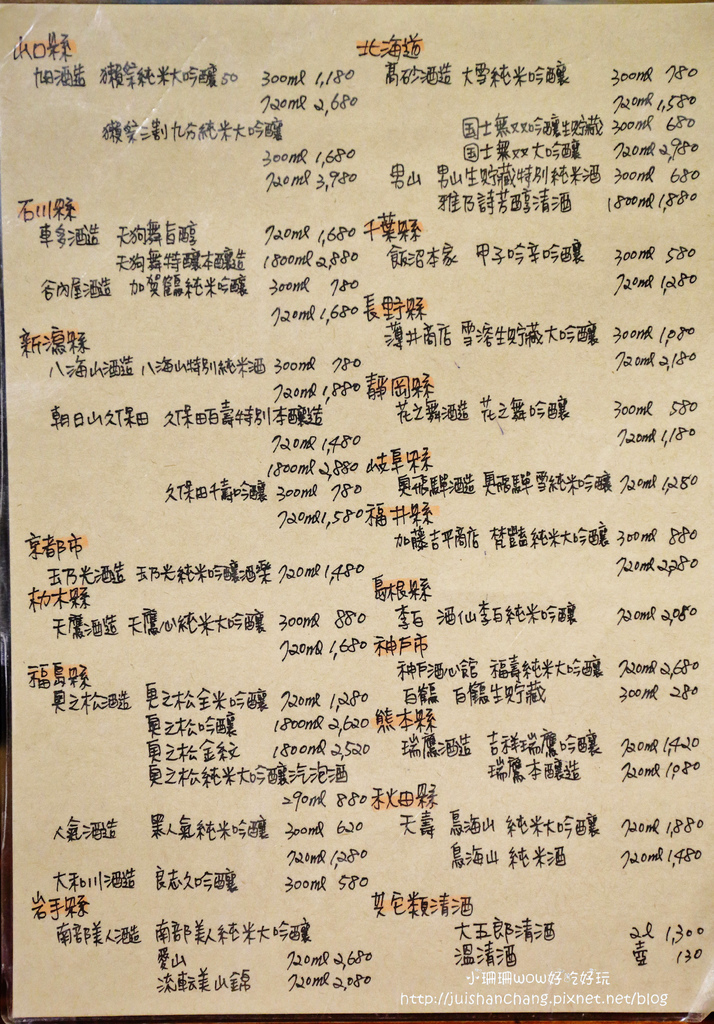 山口縣
旭酒造 獺祭純米大吟釀50 300ml 1,180
720ml 2,680
獺祭三割九分純米大吟釀
300ml 1,680
720ml 3,980
石川縣
車多酒造 天狗舞旨醇 720ml 1,680
天狗舞特釀本釀造 1800ml 2,880
谷內屋酒造 加賀鶴純米吟釀 300ml 780
720ml 1,680
新潟縣
八海山酒造 八海山特別純米酒 300ml 780
720ml 1,880
朝日山久保田 久保田百壽特別本釀造
720ml 1,480
1800ml 2,880
久保田千壽吟釀 300ml 780
720ml 1,580
京都市
玉乃光酒造 玉乃光純米吟釀酒樂 720ml 1,480
栃木縣
天鷹酒造 天鷹心純米大吟釀 300ml 880
720ml 1,680
福島縣
奧之松酒造 奧之松全米吟釀 720ml 1,280
奧之松吟釀 1800ml 2,620
奧之松金紋 1800ml 2,520
奧之松純米大吟釀汽泡酒
290ml 880
人氣酒造 黑人氣純米吟釀 300ml 620
720ml 1,280
大和川酒造 良志久吟釀 300ml 580
岩手縣
南部美人酒造 南部美人純米大吟釀
愛山 720ml 2,680
流転美山錦 720ml 2,080
北海道
高砂酒造 大雪純米吟釀 300ml 780
720ml 1,580
国士無双吟釀生貯藏 300ml 680
国士無双大吟釀 720ml 2,980
男山 男山生貯藏特別純米酒 300ml 680
雅乃詩芳醇清酒 1800ml 1,880
千葉縣
飯沼本家 甲子吟辛吟釀 300ml 580
720ml 1,280
長野縣
薄井商店 雪溶生貯藏大吟釀 300ml 1,080
720ml 2,180
靜岡縣
花之舞酒造 花之舞吟釀 300ml 580
720ml 1,180
岐阜縣
奧飛驒酒造 奧飛驒雪純米吟釀 720ml 1,280
福井縣
加藤吉平商店 梵艷純米大吟釀 300ml 880
720ml 2,280
島根縣
李白 酒仙李白純米吟釀 720ml 2,080
神戶市
神戶酒心館 福壽純米大吟釀 720ml 2,680
白鶴 白鶴生貯藏 300ml 280
熊本縣
瑞鷹酒造 吉祥瑞鷹吟釀 720ml 1,420
瑞鷹本釀造 720ml 1,080
秋田縣
天壽 鳥海山 純米大吟釀 720ml 1,880
鳥海山 純米酒 720ml 1,480
其它類清酒
大五郎清酒 2l 1,300
溫清酒 壺 130
小珊珊wow好吃好玩
http://juishanchang.pixnet.net/blog